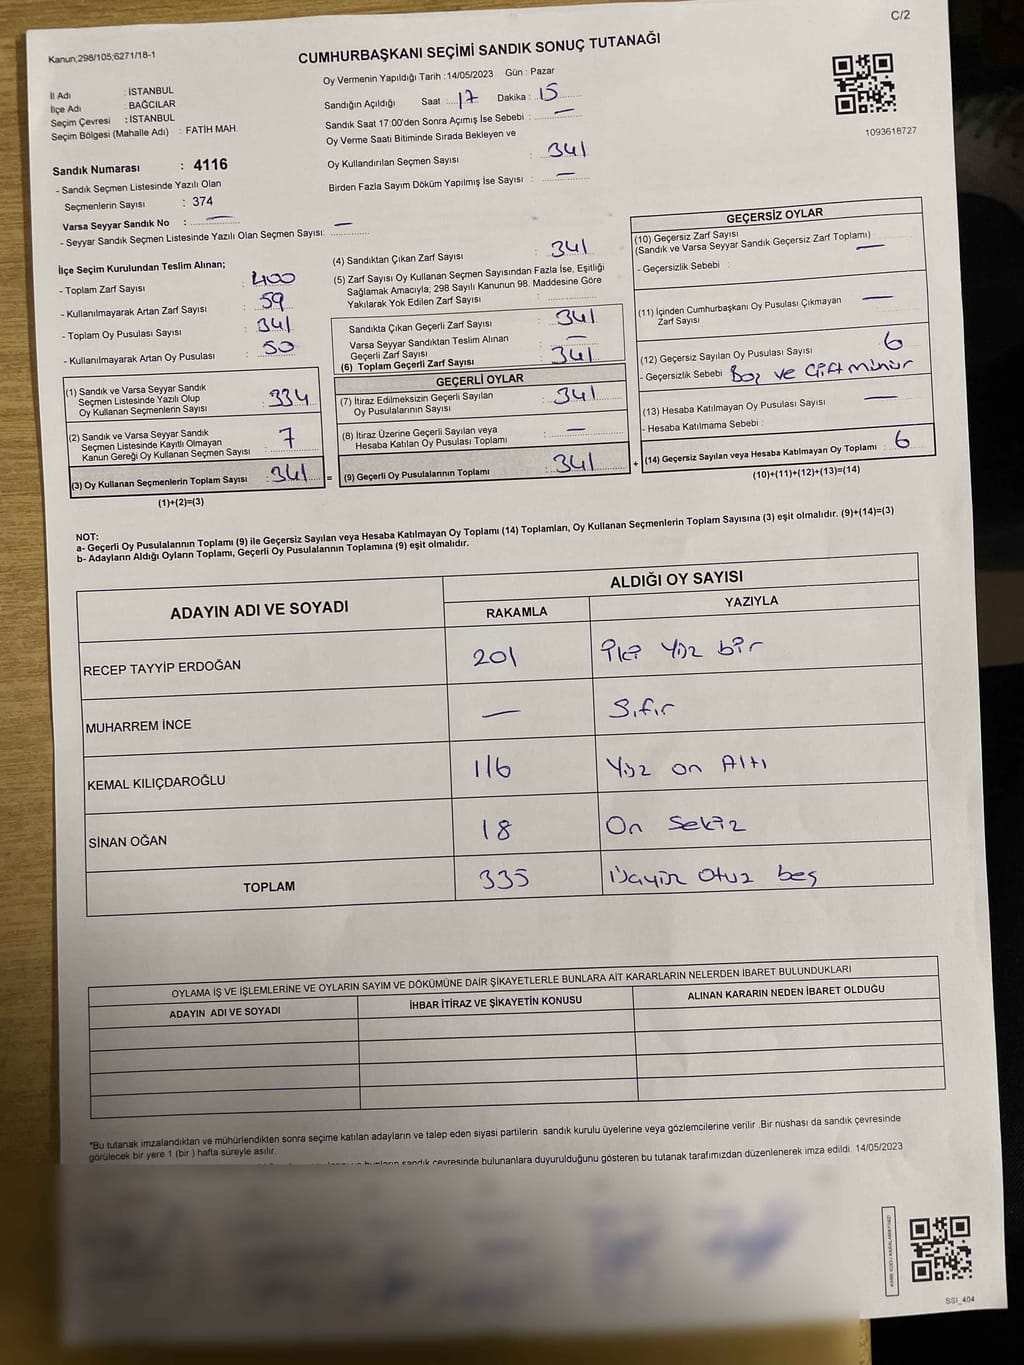 C/2
Kanun;298/105;6271/18-1
CUMHURBAŞKANI SEÇİMİ SANDIK SONUÇ TUTANAĞI
İl Adı : İSTANBUL
İlçe Adı : BAĞCILAR
Seçim Çevresi : İSTANBUL
Seçim Bölgesi (Mahalle Adı) : FATİH MAH.
Sandık Numarası : 4116
- Sandık Seçmen Listesinde Yazılı Olan
Seçmenlerin Sayısı : 374
Varsa Seyyar Sandık No : —
- Seyyar Sandık Seçmen Listesinde Yazılı Olan Seçmen Sayısı: —
Oy Vermenin Yapıldığı Tarih : 14/05/2023 Gün : Pazar
Sandığın Açıldığı Saat : 17 Dakika : 15
Sandık Saat 17:00'den Sonra Açımış İse Sebebi : —
Oy Verme Saati Bitiminde Sırada Bekleyen ve
Oy Kullandırılan Seçmen Sayısı : 341
Birden Fazla Sayım Döküm Yapılmış İse Sayısı : —
1093618727
İlçe Seçim Kurulundan Teslim Alınan;
- Toplam Zarf Sayısı : 400
- Kullanılmayarak Artan Zarf Sayısı : 59
- Toplam Oy Pusulası Sayısı : 341
- Kullanılmayarak Artan Oy Pusulası : 50
(1) Sandık ve Varsa Seyyar Sandık
Seçmen Listesinde Yazılı Olup
Oy Kullanan Seçmenlerin Sayısı : 334
(2) Sandık ve Varsa Seyyar Sandık
Seçmen Listesinde Kayıtlı Olmayan
Kanun Gereği Oy Kullanan Seçmen Sayısı : 7
(3) Oy Kullanan Seçmenlerin Toplam Sayısı : 341 =
(1)+(2)=(3)
(4) Sandıktan Çıkan Zarf Sayısı : 341
(5) Zarf Sayısı Oy Kullanan Seçmen Sayısından Fazla İse, Eşitliği
Sağlamak Amacıyla; 298 Sayılı Kanunun 98. Maddesine Göre
Yakılarak Yok Edilen Zarf Sayısı :
Sandıkta Çıkan Geçerli Zarf Sayısı : 341
Varsa Seyyar Sandıktan Teslim Alınan
Geçerli Zarf Sayısı : —
(6) Toplam Geçerli Zarf Sayısı : 341
GEÇERLİ OYLAR
(7) İtiraz Edilmeksizin Geçerli Sayılan
Oy Pusulalarının Sayısı : 341
(8) İtiraz Üzerine Geçerli Sayılan veya
Hesaba Katılan Oy Pusulası Toplamı : —
(9) Geçerli Oy Pusulalarının Toplamı : 341 +
GEÇERSİZ OYLAR
(10) Geçersiz Zarf Sayısı
(Sandık ve Varsa Seyyar Sandık Geçersiz Zarf Toplamı) : —
- Geçersizlik Sebebi :
(11) İçinden Cumhurbaşkanı Oy Pusulası Çıkmayan
Zarf Sayısı : —
(12) Geçersiz Sayılan Oy Pusulası Sayısı : 6
- Geçersizlik Sebebi : Boş ve Çift mühür
(13) Hesaba Katılmayan Oy Pusulası Sayısı : —
- Hesaba Katılmama Sebebi :
(14) Geçersiz Sayılan veya Hesaba Katılmayan Oy Toplamı : 6
(10)+(11)+(12)+(13)=(14)
NOT:
a- Geçerli Oy Pusulalarının Toplamı (9) ile Geçersiz Sayılan veya Hesaba Katılmayan Oy Toplamı (14) Toplamları, Oy Kullanan Seçmenlerin Toplam Sayısına (3) eşit olmalıdır. (9)+(14)=(3)
b- Adayların Aldığı Oyların Toplamı, Geçerli Oy Pusulalarının Toplamına (9) eşit olmalıdır.
ADAYIN ADI VE SOYADI ALDIĞI OY SAYISI
RAKAMLA YAZIYLA
RECEP TAYYİP ERDOĞAN 201 İki Yüz bir
MUHARREM İNCE — Sıfır
KEMAL KILIÇDAROĞLU 116 Yüz on Altı
SİNAN OĞAN 18 On Sekiz
TOPLAM 335 Üçyüz Otuz beş
OYLAMA İŞ VE İŞLEMLERİNE VE OYLARIN SAYIM VE DÖKÜMÜNE DAİR ŞİKAYETLERLE BUNLARA AİT KARARLARIN NELERDEN İBARET BULUNDUKLARI
ADAYIN ADI VE SOYADI İHBAR İTİRAZ VE ŞİKAYETİN KONUSU ALINAN KARARIN NEDEN İBARET OLDUĞU
*Bu tutanak imzalandıktan ve mühürlendikten sonra seçime katılan adayların ve talep eden siyasi partilerin sandık kurulu üyelerine veya gözlemcilerine verilir .Bir nüshası da sandık çevresinde
görülecek bir yere 1 (bir ) hafta süreyle asılır.
sandık çevresinde bulunanlara duyurulduğunu gösteren bu tutanak tarafımızdan düzenlenerek imza edildi. 14/05/2023
SSI_404